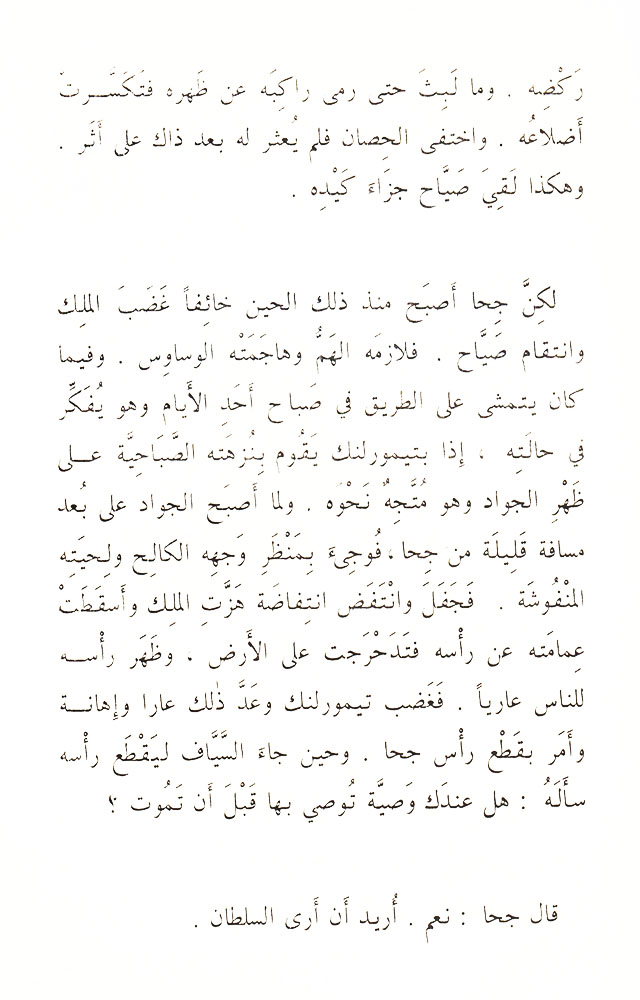 رَكْضِه . وما لَبِثَ حتى رمى راكِبَه عن ظَهره فتَكَسَّــرتْ
أَضلاعُه . واختفى الحِصان فلم يُعثر له بعد ذاك على أَثَر .
وهكذا لَقِيَ صَيَّاح جزَاءَ كَيْدِه .
لكِنَّ جِحا أَصبَح منذ ذلك الحين خائِفاً غَضَبَ الملِك
وانتقام صَيَّاح . فلازمَه الهَمُّ وهاجَمَتْه الوساوِس . وفيما
كان يتمشى على الطريق في صَباح أَحَدِ الأَيام وهو يُفَكِّر
في حالَتِه ، إذا بتيمورلنك يَقُوم بِنُزهَته الصَّبَاحِيَّة عــلى
ظَهْرِ الجواد وهو مُتَّجِهٌ نَحْوَه . ولما أَصبَح الجواد على بُعد
مسافة قَلِيلَة من جِحا ، فُوجِىءَ بِمَنْظَرِ وَجهِه الكالِح ولِحيَتِه
المنْفُوشَة . فَجَفَلَ وانْتَفَض انتِفاضَة هَزَّتِ الملِك وأَسقَطَتْ
عِمامَته عن رأْسه فتَدَحْرَجت على الأَرض . وظَهَر رأْســه
للناس عارياً . فَغَضب تيمورلنك وعَدَّ ذٰلك عارا وإهانــة
وأَمَر بقَطْع رأْس جحا . وحين جاءَ السَّيَّاف ليَقْطَع رأْسه
سأَلَهُ : هل عندَك وَصيَّة تُوصي بها قَبْلَ أَن تَمُوت ؟
قال جحا : نعم . أُريد أَن أَرى السلطان .